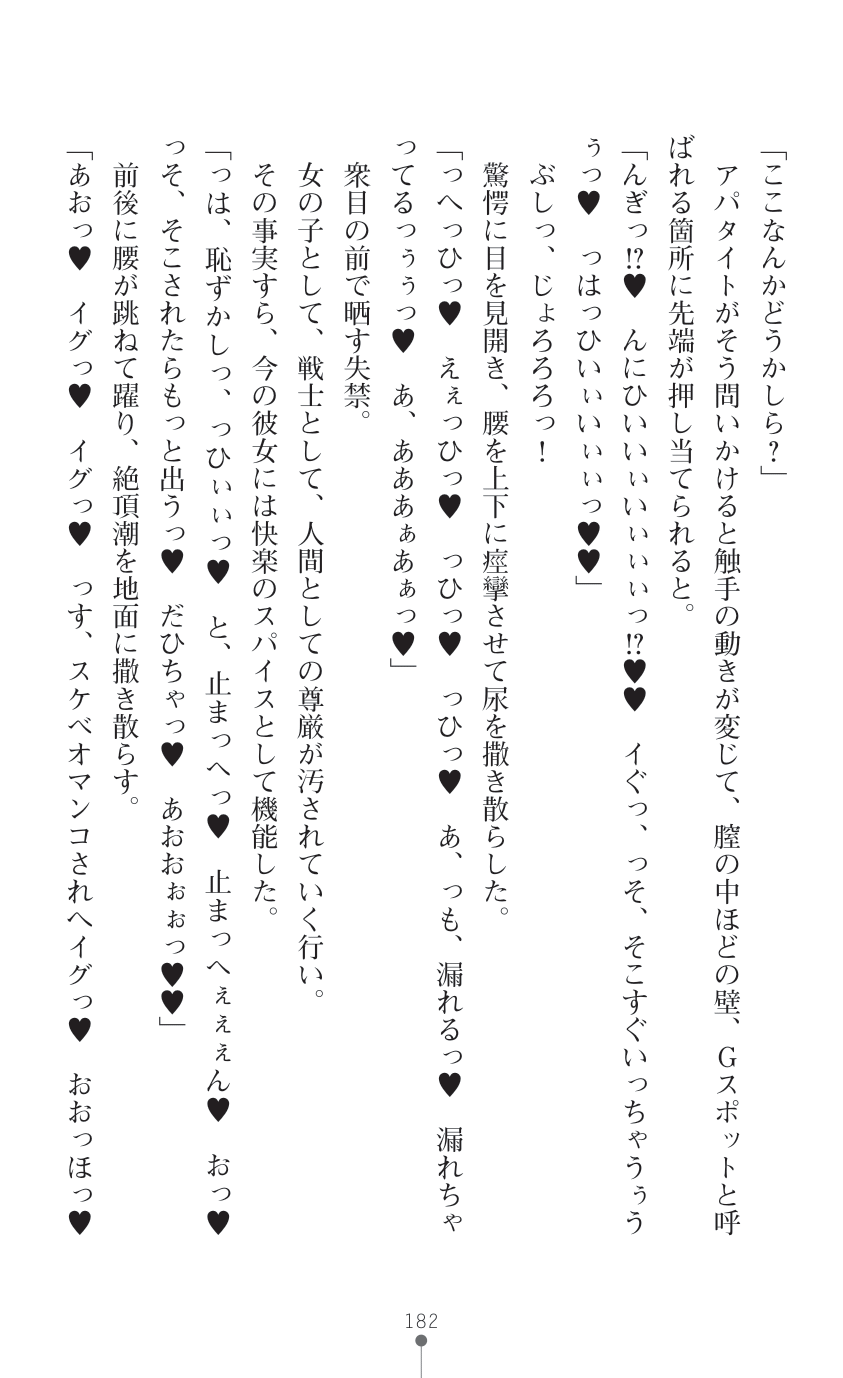 「ここなんかどうかしら？」
アパタイトがそう問いかけると触手の動きが変じて、膣の中ほどの壁、Gスポットと呼
ばれる箇所に先端が押し当てられると。
「んぎっ!?♥　んにひいいぃいぃぃぃっ!?♥♥　イぐっ、っそ、そこすぐいっちゃうぅう
ぅっ♥　っはっひいぃいぃぃっ♥♥」
ぶしっ、じょろろろっ！
驚愕に目を見開き、腰を上下に痙攣させて尿を撒き散らした。
「っへっひっ♥　えぇっひっ♥　っひっ♥　っひっ♥　あ、っも、漏れるっ♥　漏れちゃ
ってるっぅぅっ♥　あ、あああぁあぁっ♥」
衆目の前で晒す失禁。
女の子として、戦士として、人間としての尊厳が汚されていく行い。
その事実すら、今の彼女には快楽のスパイスとして機能した。
「っは、恥ずかしっ、っひぃぃっ♥　と、止まっへっ♥　止まっへぇぇぇん♥　おっ♥
っそ、そこされたらもっと出うっ♥　だひちゃっ♥　あおおぉぉっ♥♥」
前後に腰が跳ねて躍り、絶頂潮を地面に撒き散らす。
「あおっ♥　イグっ♥　イグっ♥　っす、スケベオマンコされへイグっ♥　おおっほっ♥
182